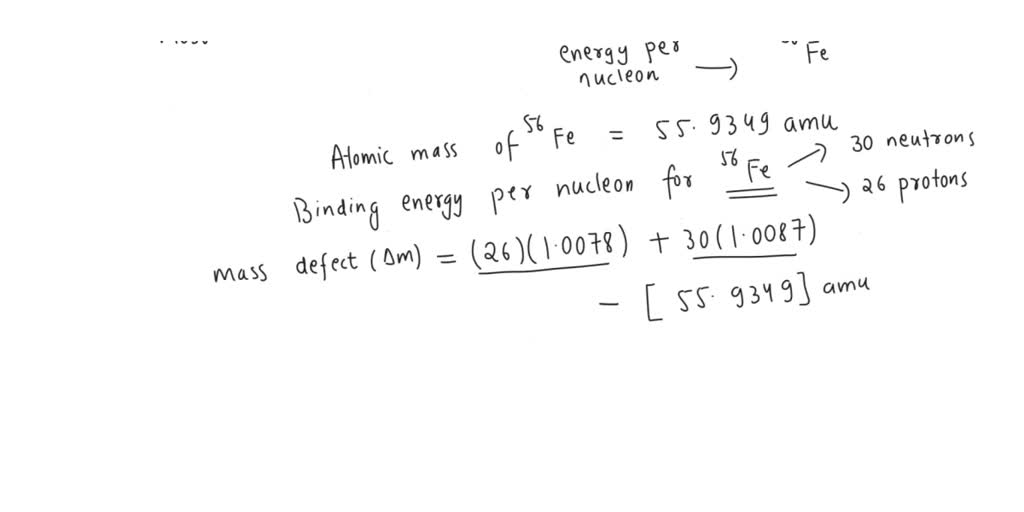 energy per
nucleon → Fe
Atomic mass of ⁵⁶Fe = 55.9349 amu
30 neutrons
Binding energy per nucleon for ⁵⁶Fe
26 protons
mass defect (Δm) = (26)(1.0078) + 30(1.0087)
− [55.9349] amu